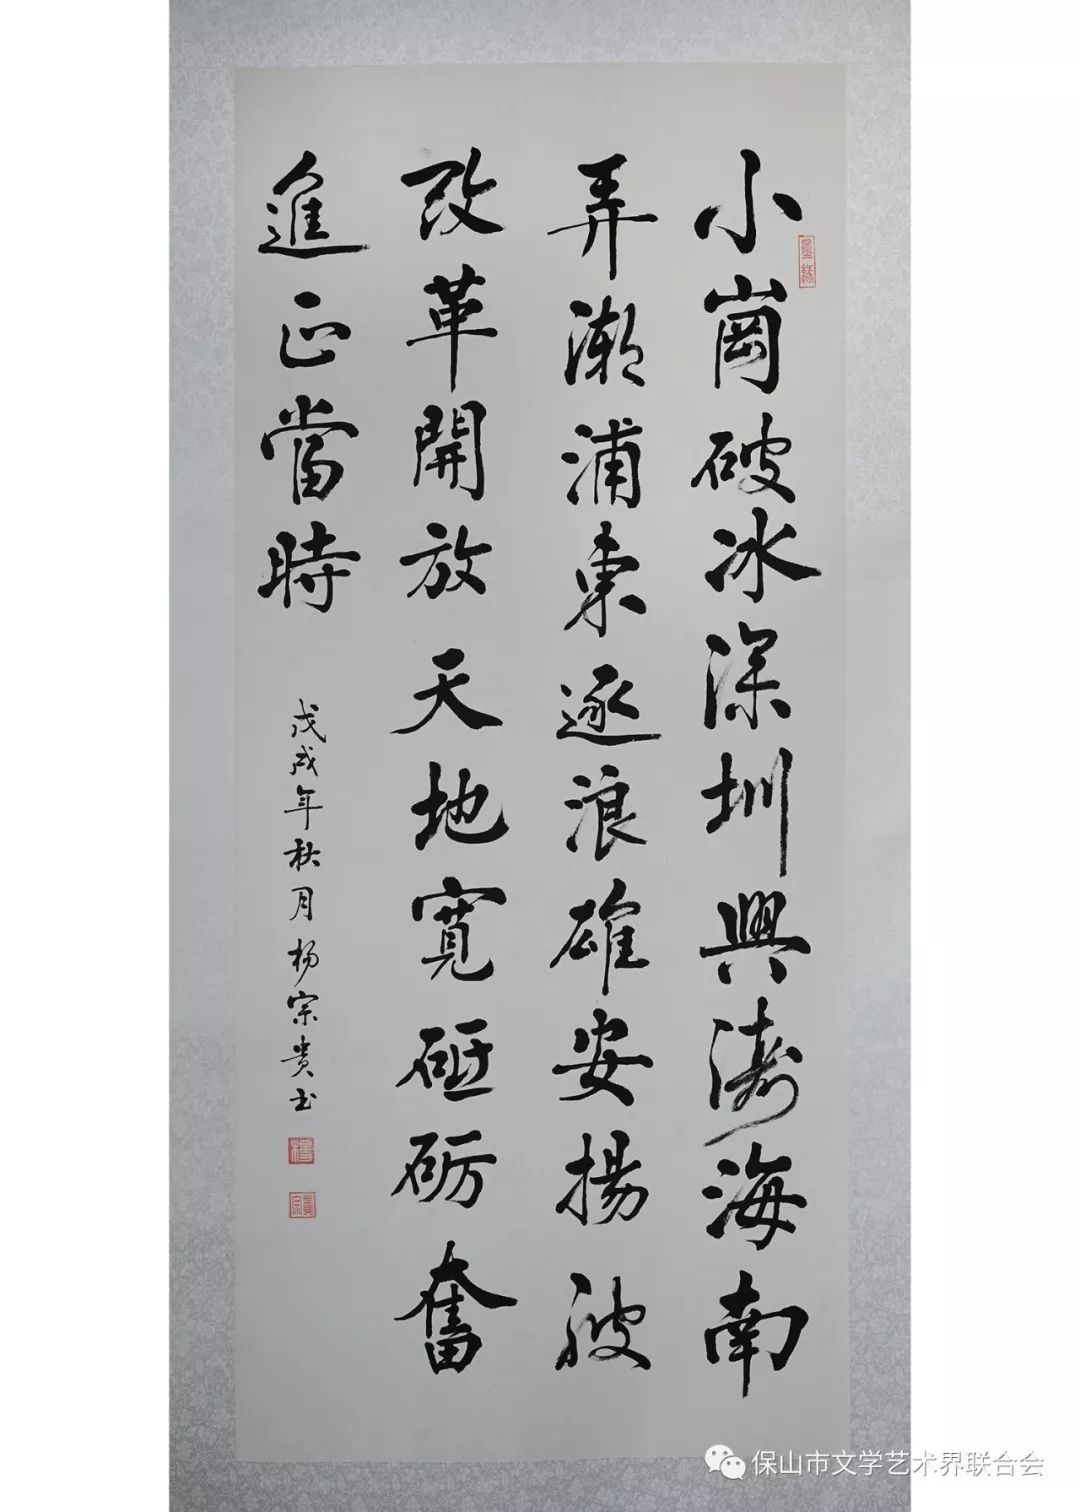 小崗破冰深圳興濤海南
弄潮浦東逐浪雄安揚波
改革開放天地寬砥砺奮
進正當時
戊戌年秋月杨宗贵书
墨緣
保山市文学艺术界联合会